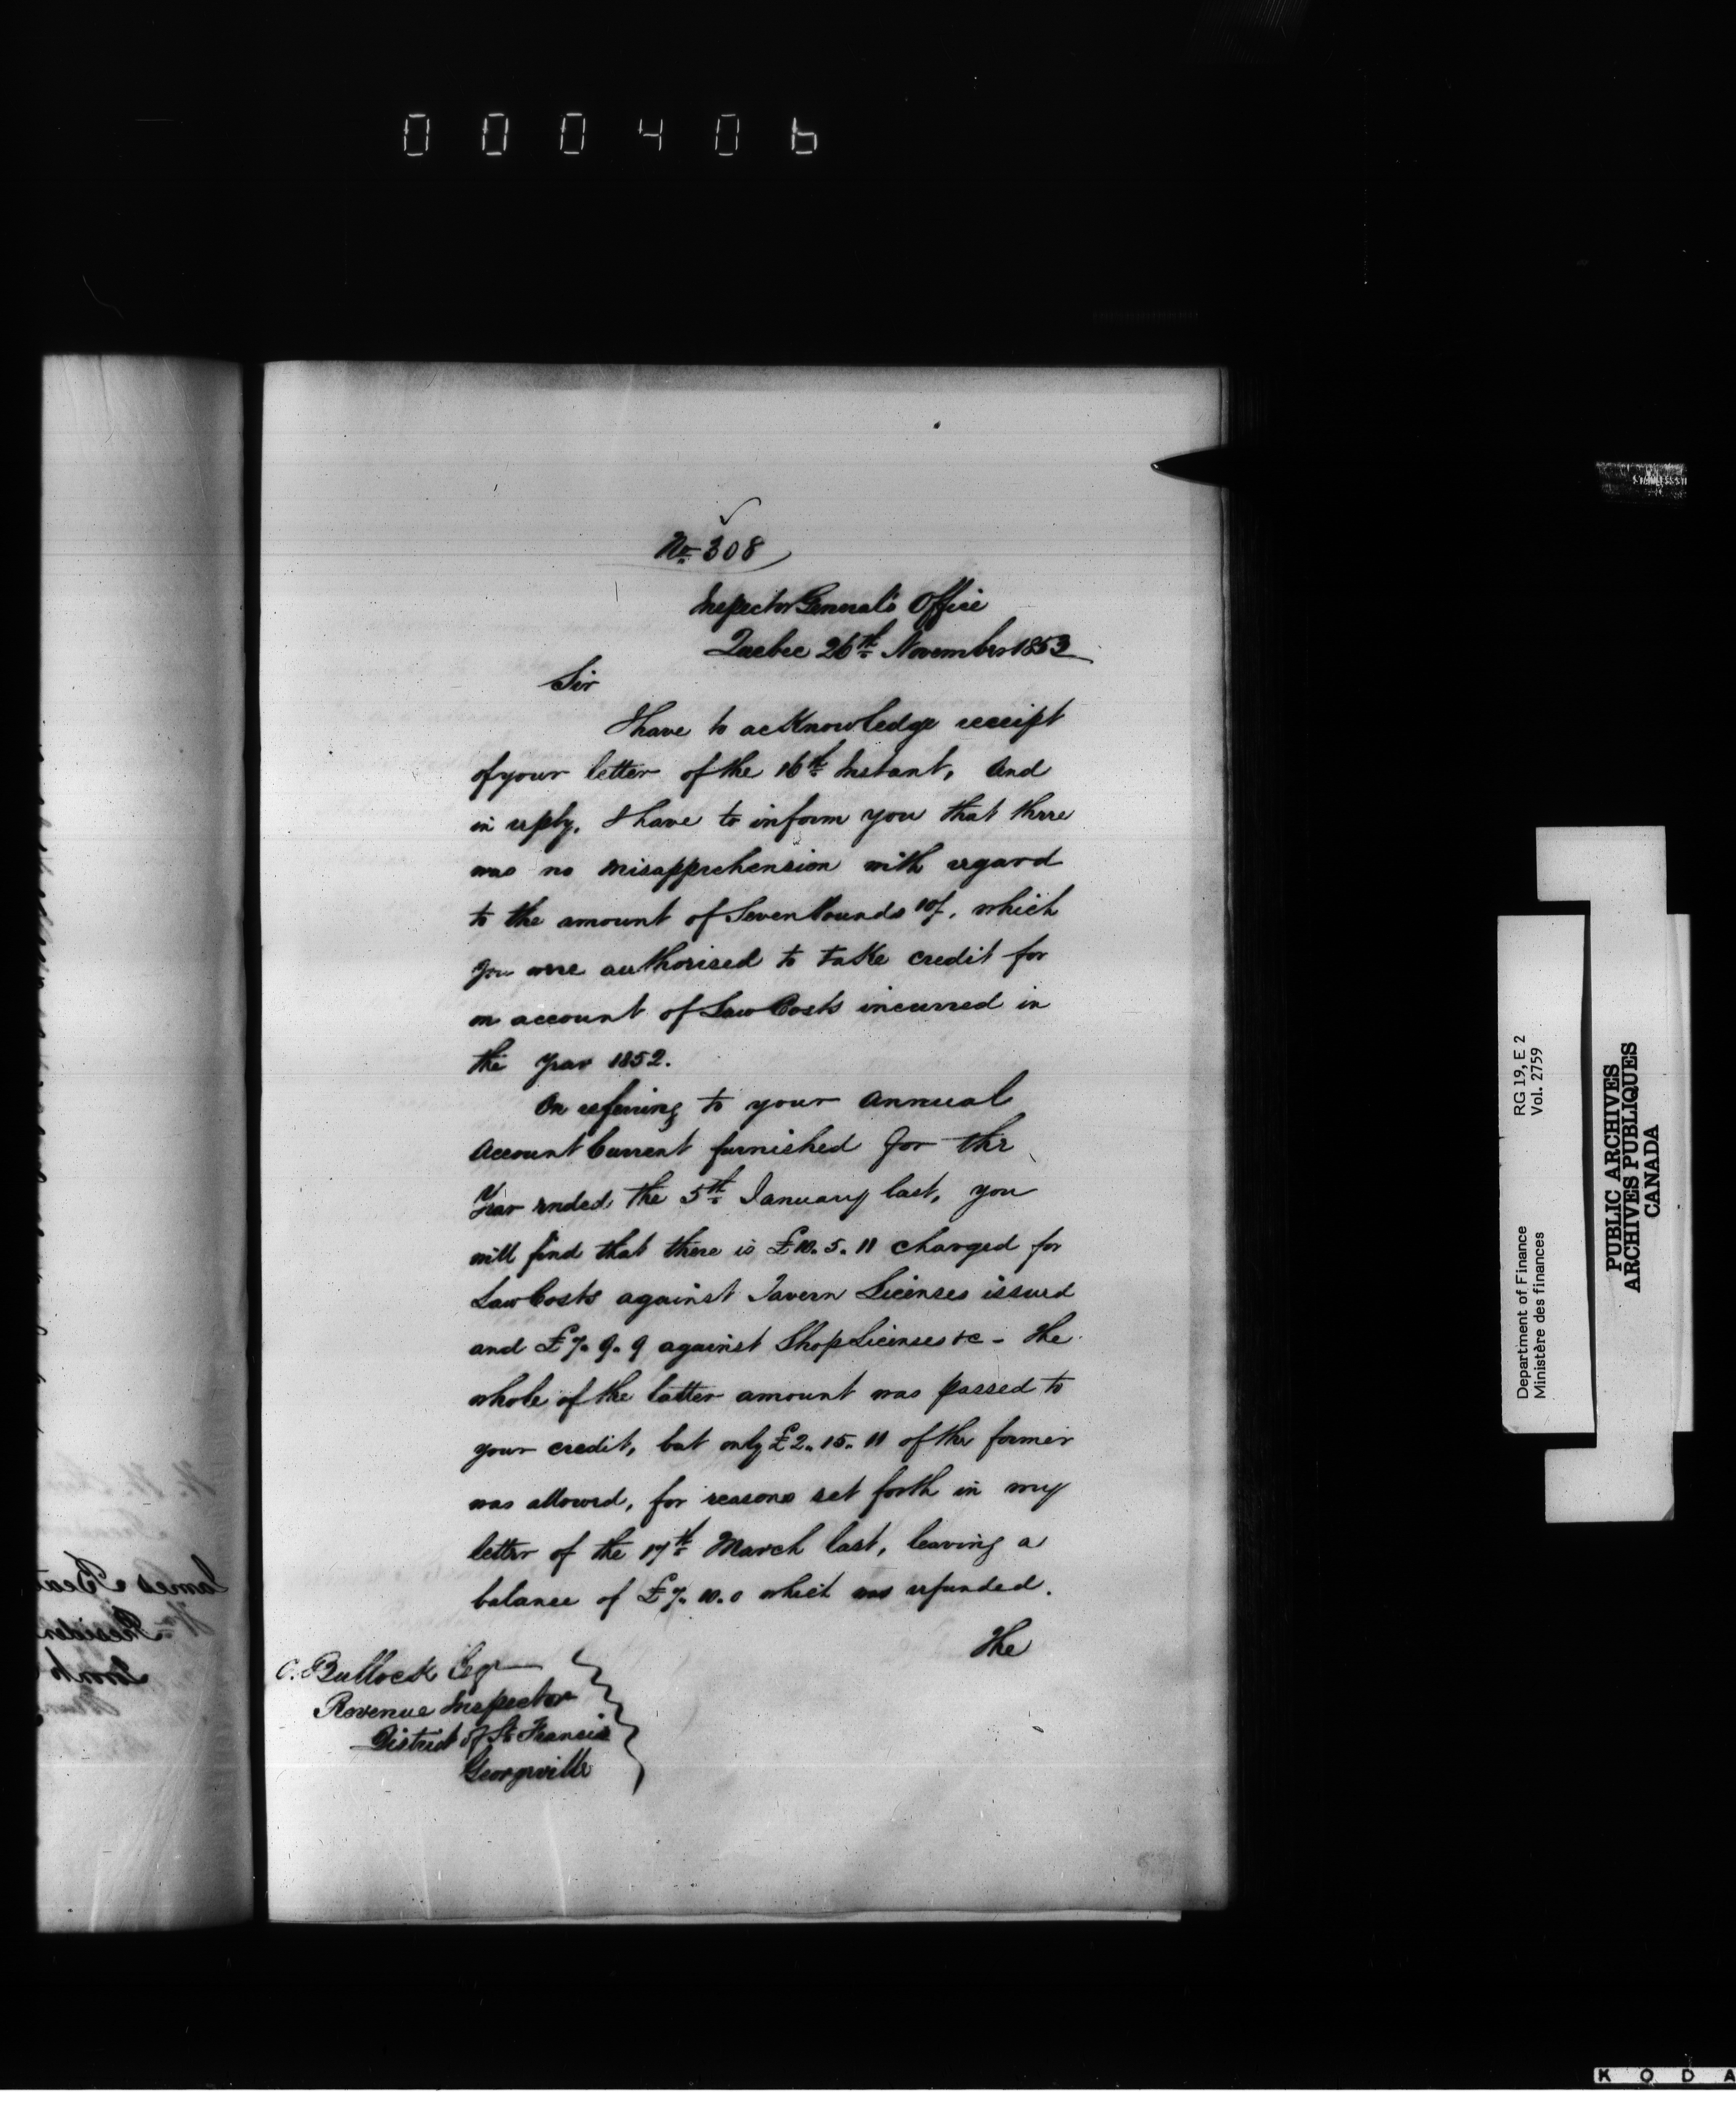 000406
No 308
Inspector General's Office
Quebec 26th November 1853
Sir
I have to acknowledge receipt
of your letter of the 16th Instant, and
in reply, I have to inform you that there
was no misapprehension with regard
to the amount of Seven Pounds 10/. which
you were authorised to take credit for
on account of Law Costs incurred in
the year 1852.
On referring to your annual
Account Current furnished for the
Year ended the 5th January last, you
will find that there is £10.5.11 charged for
Law Costs against Tavern Licenses issued
and £7.9.9 against Shop Licenses &c - The
whole of the latter amount was passed to
your credit, but only £2.15.11 of the former
was allowed, for reasons set forth in my
letter of the 17th March last, leaving a
balance of £7.10.0 which was refunded.
The
C. Bullock Esqr
Revenue Inspector
District of St Francis
Georgeville
James
Presiden
RG 19, E 2
Vol. 2759
Department of Finance
Ministère des finances
PUBLIC ARCHIVES
ARCHIVES PUBLIQUES
CANADA
K O D A